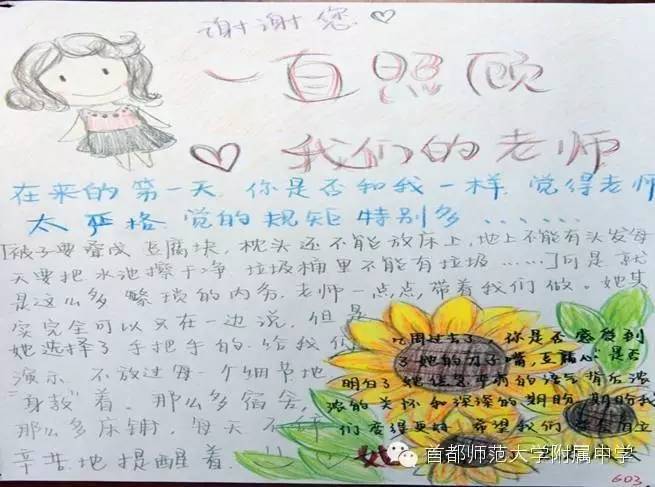 谢谢您
一直照顾
我们的老师
在来的第一天,你是否和我一样,觉得老师
太严格,觉的规矩特别多......
「被子要叠成豆腐块,枕头还不能放床上,地上不能有头发每
天要把水池擦干净 垃圾桶里不能有垃圾......」可是就
是这么多繁琐的内务,老师一点点,带着我们做。她其
实完全可以只在一边说,但是
她选择了手把手的给我们
演示 不放过每一个细节地
"身教"着。那么多宿舍,
那么多床铺,每天不
辛苦地提醒着.
周过去了 你是否感受到
了她的刀子嘴,豆腐心 是否
明白了她 严肃的语气背后浓
浓的关怀和深深的期盼 期盼我
们变得更好 希望我们 自立
首都师范大学附属中学
603